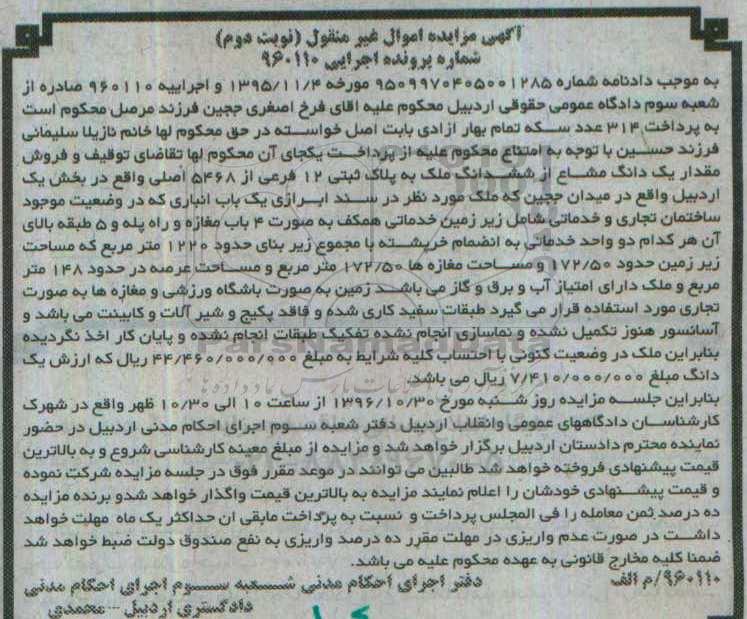 آگهی مزایده اموال غیر منقول (نوبت دوم)
شماره پرونده اجرایی ۹۶۰۱۱۰
به موجب دادنامه شماره ۹۵۰۹۹۷۰۴۰۵۰۰۱۲۸۵ مورخه ۱۳۹۵/۱۱/۴ و اجراییه ۹۶۰۱۱۰ صادره از
شعبه سوم دادگاه عمومی حقوقی اردبیل محکوم علیه اقای فرخ اصغری ججین فرزند مرصل محکوم است
به پرداخت ۳۱۴ عدد سکه تمام بهار ازادی بابت اصل خواسته در حق محکوم لها خانم نازیلا سلیمانی
فرزند حسین با توجه به امتناع محکوم علیه از پرداخت یکجای آن محکوم لها تقاضای توقیف و فروش
مقدار یک دانگ مشاع از ششدانگ ملک به پلاک ثبتی ۱۲ فرعی از ۵۴۶۸ اصلی واقع در بخش یک
اردبیل واقع در میدان ججین که ملک مورد نظر در سند ابرازی یک باب انباری که در وضعیت موجود
ساختمان تجاری و خدماتی شامل زیر زمین خدماتی همکف به صورت ۴ باب مغازه و راه پله و ۵ طبقه بالای
آن هر کدام دو واحد خدماتی به انضمام خرپشته با مجموع زیر بنای حدود ۱۲۲۰ متر مربع که مساحت
زیر زمین حدود ۱۷۲/۵۰ و مساحت مغازه ها ۱۷۲/۵۰ متر مربع و مساحت عرصه در حدود ۱۴۸ متر
مربع و ملک دارای امتیاز آب و برق و گاز می باشد زمین به صورت باشگاه ورزشی و مغازه ها به صورت
تجاری مورد استفاده قرار می گیرد طبقات سفید کاری شده و فاقد پکیج و شیر آلات و کابینت می باشد و
آسانسور هنوز تکمیل نشده و نماسازی انجام نشده تفکیک طبقات انجام نشده و پایان کار اخذ نگردیده
بنابراین ملک در وضعیت کنونی با احتساب کلیه شرایط به مبلغ ۴۴/۴۶۰/۰۰۰/۰۰۰ ریال که ارزش یک
دانگ مبلغ ۷/۴۱۰/۰۰۰/۰۰۰ ریال می باشد.
بنابراین جلسه مزایده روز شنبه مورخ ۱۳۹۶/۱۰/۳۰ از ساعت ۱۰ الی ۱۰/۳۰ ظهر واقع در شهرک
کارشناسان دادگاههای عمومی وانقلاب اردبیل دفتر شعبه سوم اجرای احکام مدنی اردبیل در حضور
نماینده محترم دادستان اردبیل برگزار خواهد شد و مزایده از مبلغ معینه کارشناسی شروع و به بالاترین
قیمت پیشنهادی فروخته خواهد شد طالبین می توانند در موعد مقرر فوق در جلسه مزایده شرکت نموده
و قیمت پیشنهادی خودشان را اعلام نمایند مزایده به بالاترین قیمت واگذار خواهد شدو برنده مزایده
ده درصد ثمن معامله را فی المجلس پرداخت و نسبت به پرداخت مابقی ان حداکثر یک ماه مهلت خواهد
داشت در صورت عدم واریزی در مهلت مقرر ده درصد واریزی به نفع صندوق دولت ضبط خواهد شد
ضمنا کلیه مخارج قانونی به عهده محکوم علیه می باشد.
۹۶۰۱۱۰/م الف دفتر اجرای احکام مدنی شعبه سوم اجرای احکام مدنی
دادگستری اردبیل - محمدی
ParsNamadData